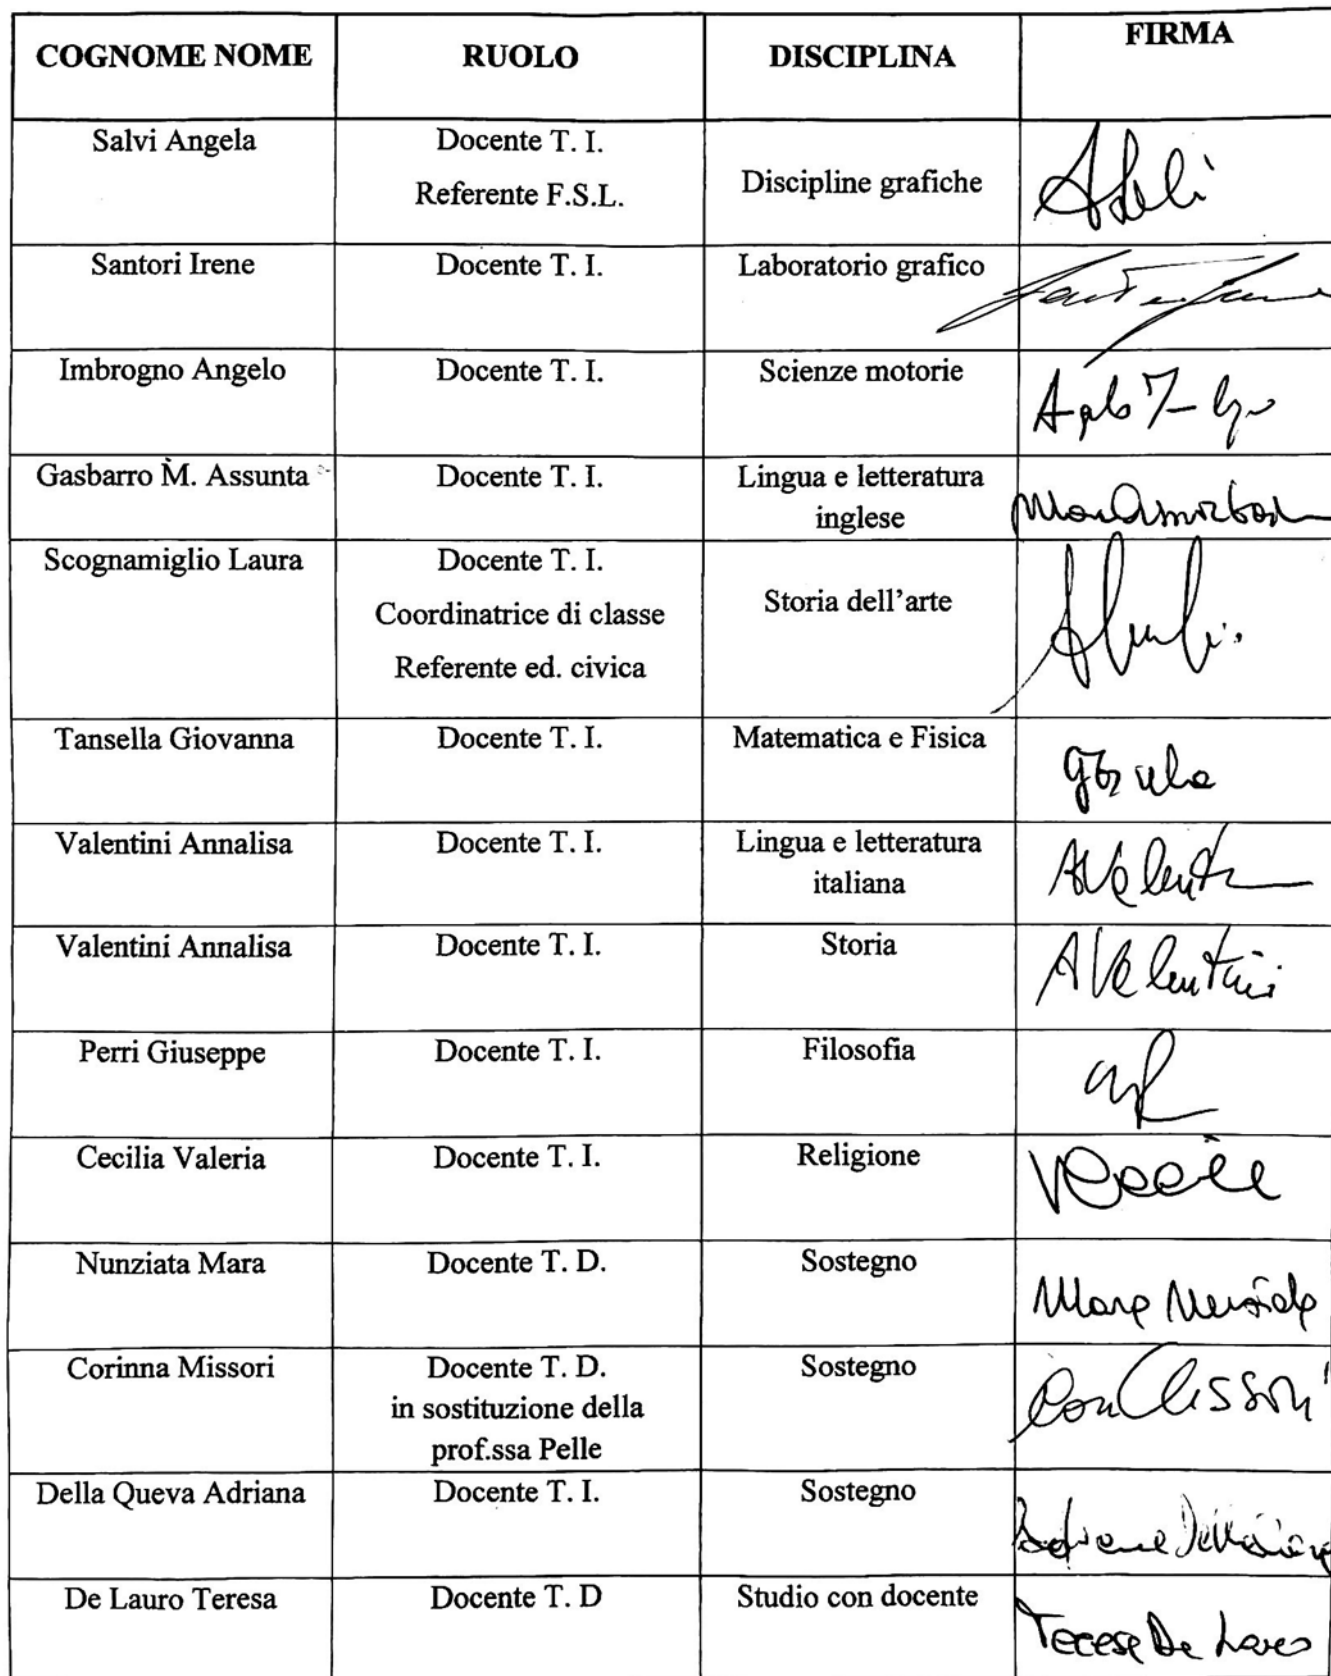 COGNOME NOME RUOLO DISCIPLINA FIRMA
Salvi Angela Docente T. I.
Referente F.S.L. Discipline grafiche
Santori Irene Docente T. I. Laboratorio grafico
Imbrogno Angelo Docente T. I. Scienze motorie
Gasbarro M. Assunta Docente T. I. Lingua e letteratura
inglese
Scognamiglio Laura Docente T. I.
Coordinatrice di classe Storia dell'arte
Referente ed. civica
Tansella Giovanna Docente T. I. Matematica e Fisica
Valentini Annalisa Docente T. I. Lingua e letteratura
italiana
Valentini Annalisa Docente T. I. Storia AValentini
Perri Giuseppe Docente T. I. Filosofia
Cecilia Valeria Docente T. I. Religione
Nunziata Mara Docente T. D. Sostegno
Mara Nunziata
Corinna Missori Docente T. D. Sostegno
in sostituzione della
prof.ssa Pelle
Della Queva Adriana Docente T. I. Sostegno
De Lauro Teresa Docente T. D Studio con docente
Teresa De Lauro